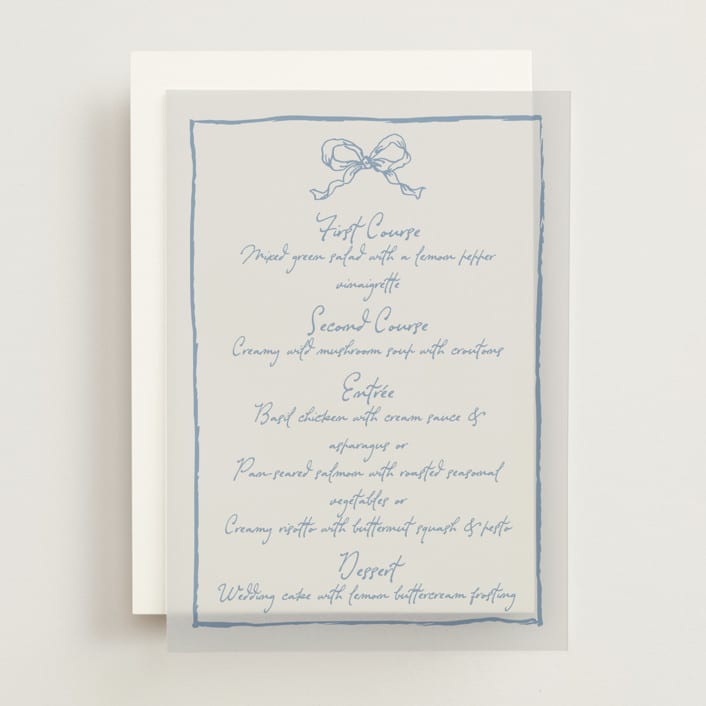 First Course
Mixed green salad with a lemon pepper
vinaigrette
Second Course
Creamy wild mushroom soup with croutons
Entrée
Basil chicken with cream sauce &
asparagus or
Pan-seared salmon with roasted seasonal
vegetables or
Creamy risotto with butternut squash & pesto
Dessert
Wedding cake with lemon buttercream frosting